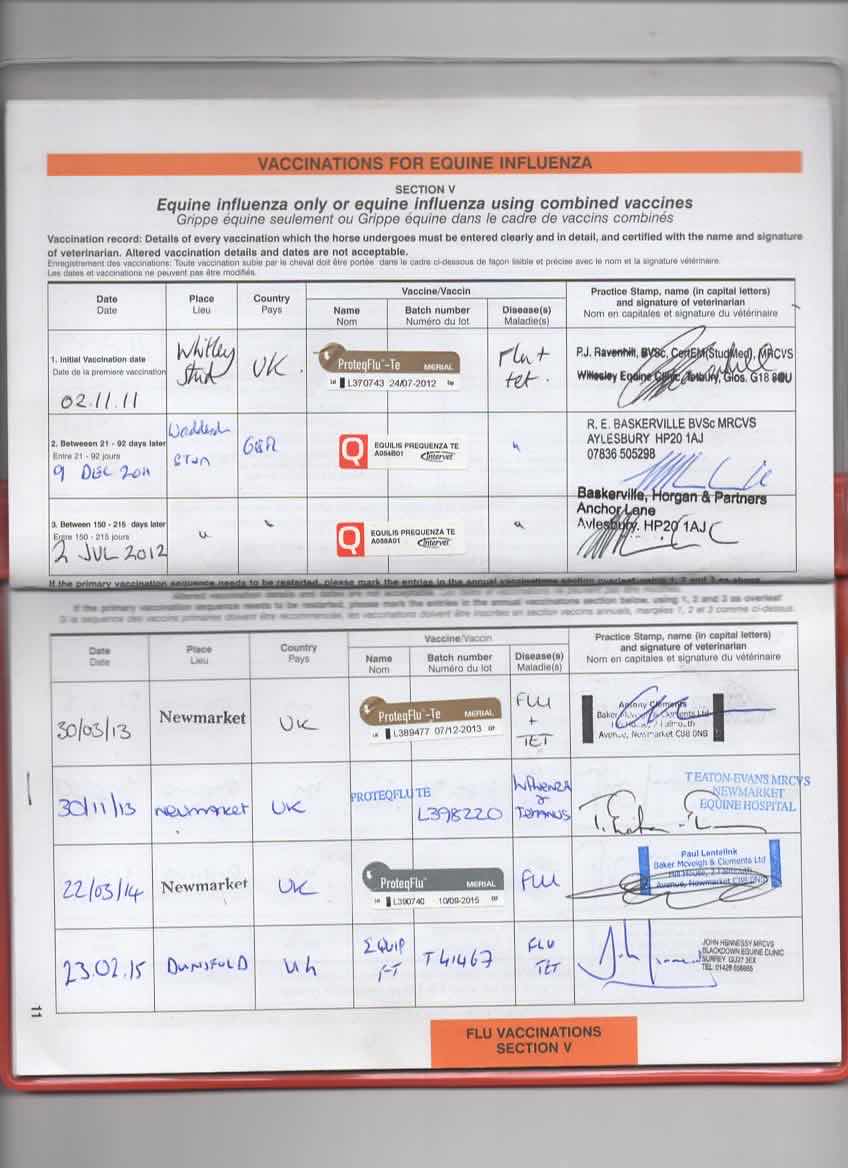 VACCINATIONS FOR EQUINE INFLUENZA
SECTION V
Equine influenza only or equine influenza using combined vaccines
Grippe équine seulement ou Grippe équine dans le cadre de vaccins combinés
Vaccination record: Details of every vaccination which the horse undergoes must be entered clearly and in detail, and certified with the name and signature
of veterinarian. Altered vaccination details and dates are not acceptable.
Enregistrement des vaccinations: Toute vaccination subie par le cheval doit être portée dans le cadre ci-dessous de façon lisible et précise avec le nom et la signature vétérinaire.
Les dates et vaccinations ne peuvent pas être modifiés.
Date Place Country Vaccine/Vaccin Practice Stamp, name (in capital letters)
Date Lieu Pays Name Batch number Disease(s) and signature of veterinarian
Nom Numéro du lot Maladie(s) Nom en capitales et signature du vétérinaire
1. Initial Vaccination date Whitley Stud UK. ProteqFlu-Te MERIAL Flu + tet. P.J. Ravenhill, BVSc, CertEM(StudMed), MRCVS
Date de la premiere vaccination L370743 24/07-2012 Willesley Equine Clinic, Tetbury, Glos. G18 8QU
02.11.11
2. Betweeen 21 - 92 days later Stud GBR EQUILIS PREQUENZA TE R. E. BASKERVILLE BVSc MRCVS
Entre 21 - 92 jours A054B01 Intervet AYLESBURY HP20 1AJ
9 DEC 2011 07836 505298
3. Between 150 - 215 days later EQUILIS PREQUENZA TE Baskerville, Horgan & Partners
Entre 150 - 215 jours A058A01 Intervet Anchor Lane
2 JUL 2012 Aylesbury. HP20 1AJ
If the primary vaccination sequence needs to be restarted, please mark the entries in the annual vaccinations section overleaf, using 1, 2 and 3 as above
If the primary vaccination sequence needs to be restarted, please mark the entries in the annual vaccinations section below, using 1, 2 and 3 as overleaf
Date Place Country Vaccine/Vaccin Practice Stamp, name (in capital letters)
Date Lieu Pays Name Batch number Disease(s) and signature of veterinarian
Nom Numéro du lot Maladie(s) Nom en capitales et signature du vétérinaire
30/03/13 Newmarket UK ProteqFlu-Te MERIAL FLU + TET Antony Clements
L389477 07/12-2013 Avenue, Newmarket CB8 0NG
30/11/13 Newmarket UK PROTEQFLU TE L398220 T EATON-EVANS MRCVS
NEWMARKET
EQUINE HOSPITAL
22/03/14 Newmarket UK ProteqFlu MERIAL FLU Paul Lentelink
L390740 10/09-2015 Baker Mcveigh & Clements Ltd
Avenue, Newmarket CB8 0NG
23.02.15 DUNSFOLD UK EQUIP FT T41467 FLU TET JOHN HENNESSY MRCVS
BLACKDOWN EQUINE CLINIC
SURREY GU27 3EX
11
FLU VACCINATIONS
SECTION V